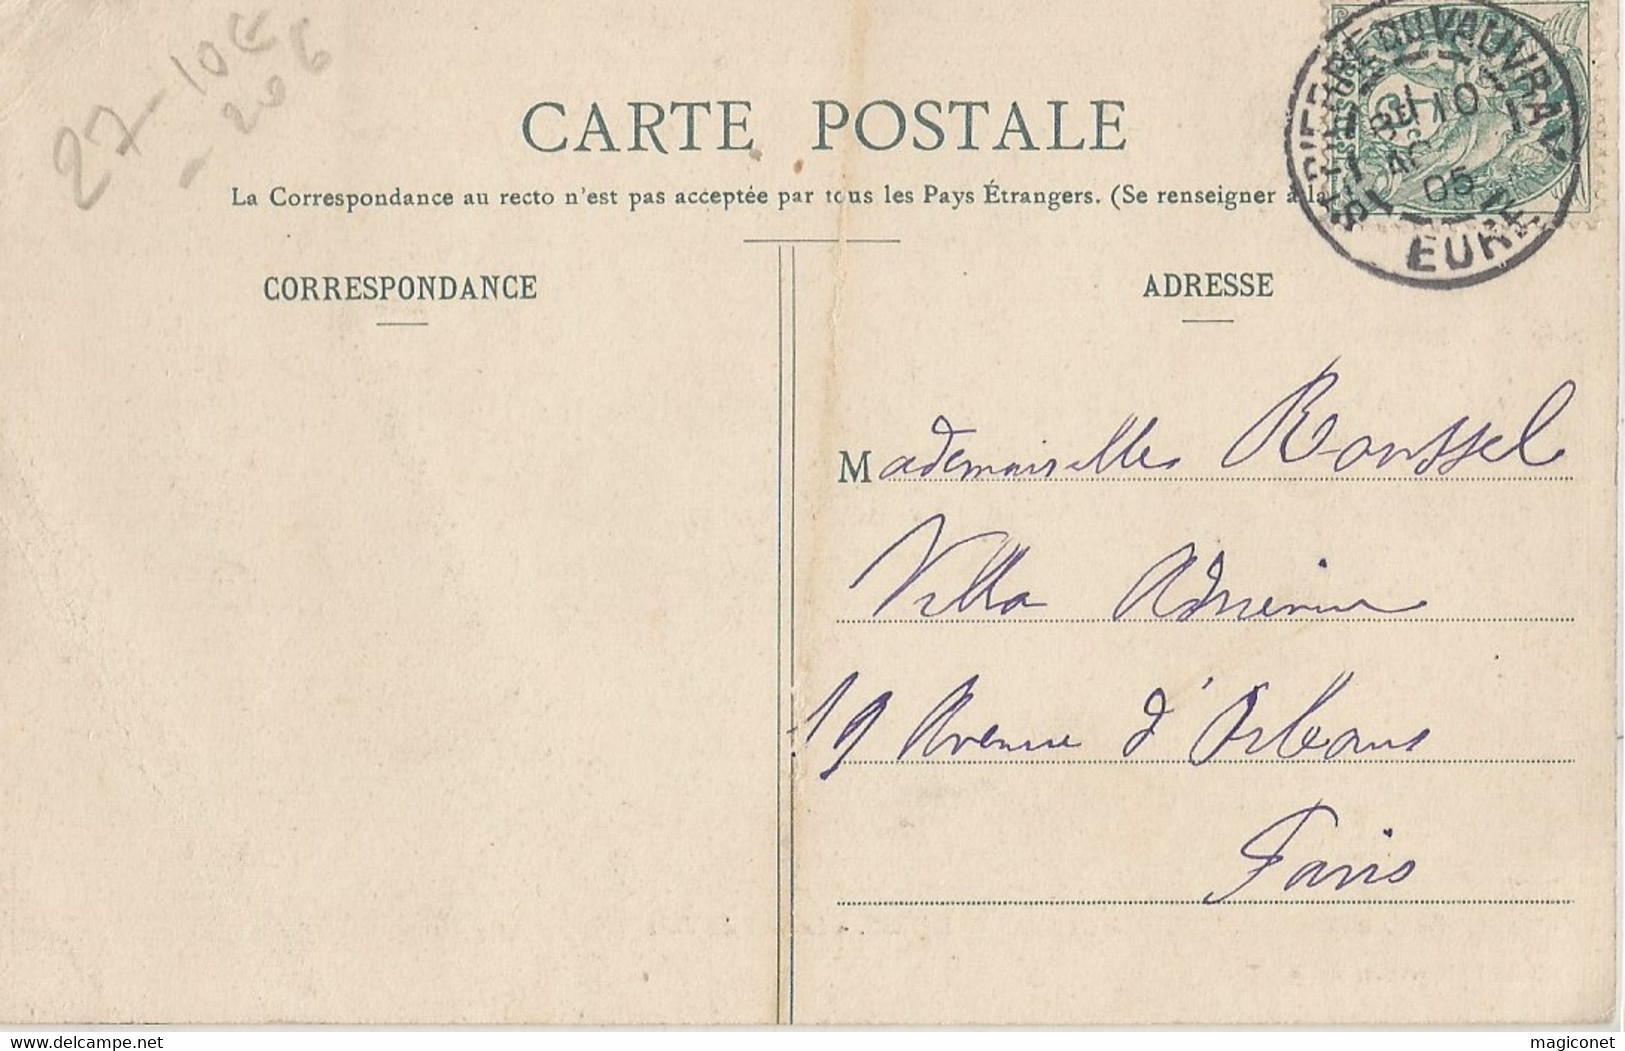 27-10€
- 206
CARTE POSTALE
La Correspondance au recto n'est pas acceptée par tous les Pays Étrangers. (Se renseigner à la
CORRESPONDANCE
ADRESSE
ST PIERRE DU VAUVRAY
10
05
EURE
Mademoiselles Roussel
Villa Adrienne
19 Avenue d'Orléans
Paris
www.delcampe.net
magiconet